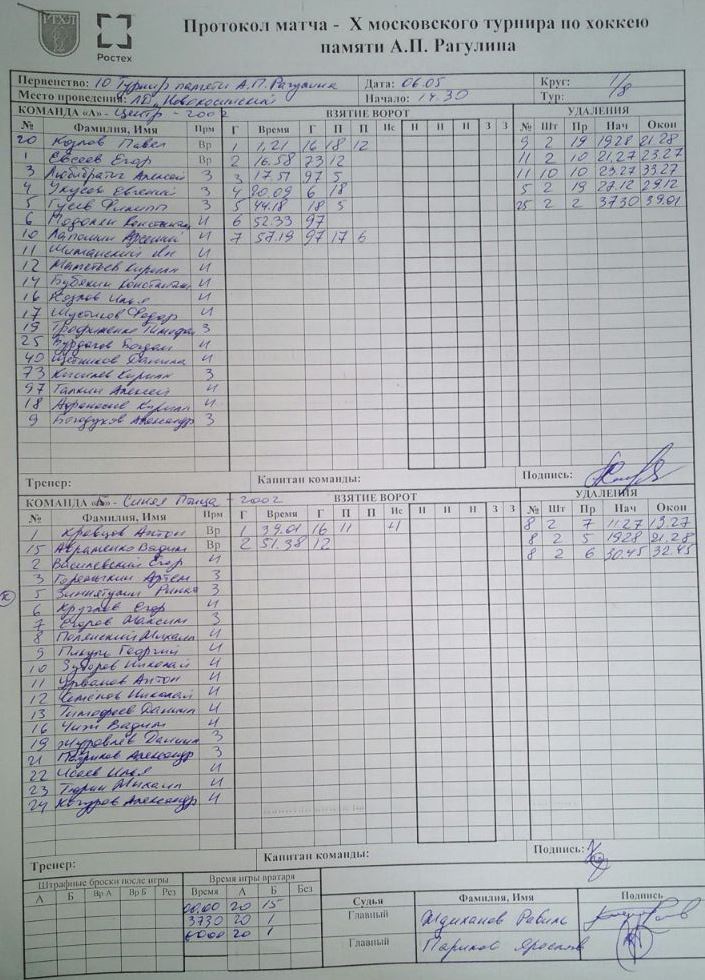 ГТХЛ
Ростех
Протокол матча - X московского турнира по хоккею
памяти А.П. Рагулина
Первенство: 10 Турнир памяти А.П. Рагулина Дата: 06.05 Круг: 1/8
Место проведения: ЛД Новокосинский Начало: 14.30 Тур:
КОМАНДА «А» - Центр - 2002 ВЗЯТИЕ ВОРОТ УДАЛЕНИЯ
№ Фамилия, Имя Прм Г Время Г П П Ис Н Н Н З З № Шт Пр Нач Окон
20 Козлов Павел Вр 1 1,21 16 18 12 9 2 19 19.28 21.28
1 Евсеев Егор Вр 2 16.58 73 12 11 2 10 21.27 23.27
3 Алексей З 3 17.51 97 5 11 10 10 23.27 33.27
4 Укусов Евгений З 4 20.09 6 18 5 2 19 27.12 29.12
5 Гусев Филипп З 5 44.18 18 5 25 2 2 37.30 39.01
6 И 6 52.33 97
10 Лапошин Арсений И 7 57.19 97 17 6
11 Шиманский Ян И
12 Кирилл И
14 Бубякин Константин И
16 Козлов Илья И
17 Шустиков Федор И
19 Трофименко Тимофей З
25 Богдан И
40 Данила И
73 Киселев Кирилл З
97 Галкин Алексей И
18 Афанасьев Кирилл И
9 Богодухов Александр З
Тренер: Капитан команды: Подпись:
КОМАНДА «Б» - Синяя Птица - 2002 ВЗЯТИЕ ВОРОТ УДАЛЕНИЯ
№ Фамилия, Имя Прм Г Время Г П П Ис Н Н Н З З № Шт Пр Нач Окон
1 Кравцов Антон Вр 1 39.01 16 11 Ч 8 2 7 11.27 13.27
15 Авраменко Вадим Вр 2 51.38 12 8 2 5 19.28 21.28
2 Василевский Егор И 8 2 6 30.45 32.45
3 Горенышин Артем З
К 5 Зиннятуллин З
6 Круглов Егор И
7 Егоров Максим З
8 Полянский Михаил И
9 Пикуль Георгий И
10 Зубарев Николай И
11 Урванов Антон И
12 Семенов Николай И
13 Тимофеев Данила И
16 Чиж Вадим И
19 Журавлев Даниил З
21 Александр З
22 Исаев Илья И
23 Тюрин Михаил И
24 Кочуров Александр И
Тренер: Капитан команды: Подпись:
Штрафные броски после игры Время игры вратаря
А Б Вр А Вр Б Рез Время А Б Без Судья Фамилия, Имя Подпись
00.00 20 15
37.30 20 1 Главный
60.00 20 1
Главный Париков Ярослав